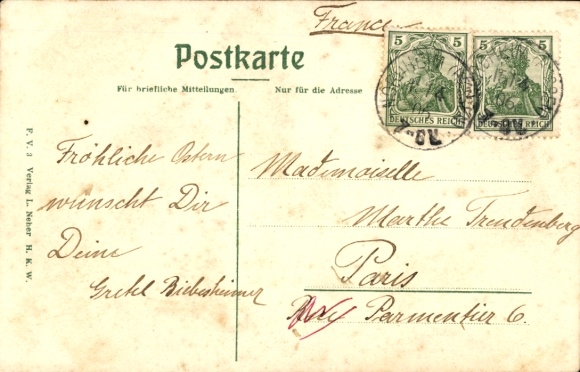 France
Postkarte
Für briefliche Mitteilungen
Nur für die Adresse
5 5
DEUTSCHES REICH
5 5
DEUTSCHES REICH
F. V. 3 Verlag L. Neher H. K. W.
Fröhliche Ostern
wünscht Dir
Deine
Gretel Biebesheimer
Mademoiselle
Marthe Freudenberg
Paris
Parmentier 6.